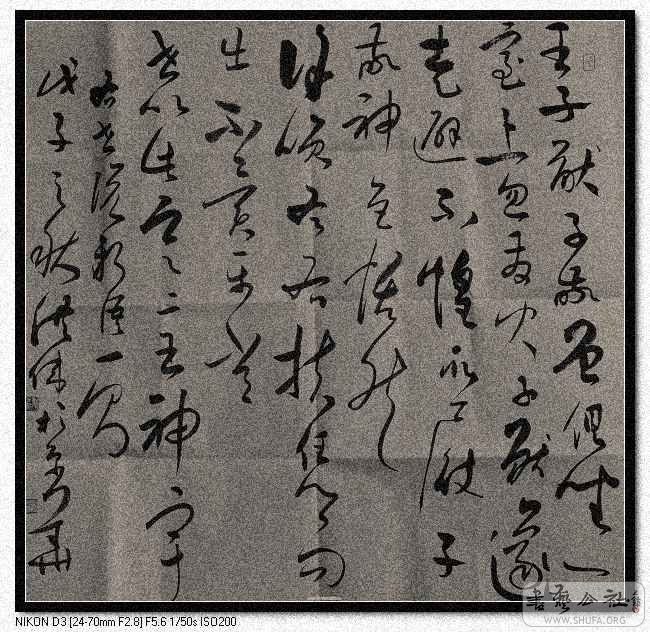 王子猷子敬曾俱坐一
室上忽發火子猷遽
走避不惶取屐子
敬神色恬然
徐喚左右扶憑而
出不異平常
世以此定二王神宇
右世説新語一則
戊子之秋洪偉於京
書藝公社
WWW.SHUFA.ORG
NIKON D3 [24-70mm F2.8] F5.6 1/50s ISO200